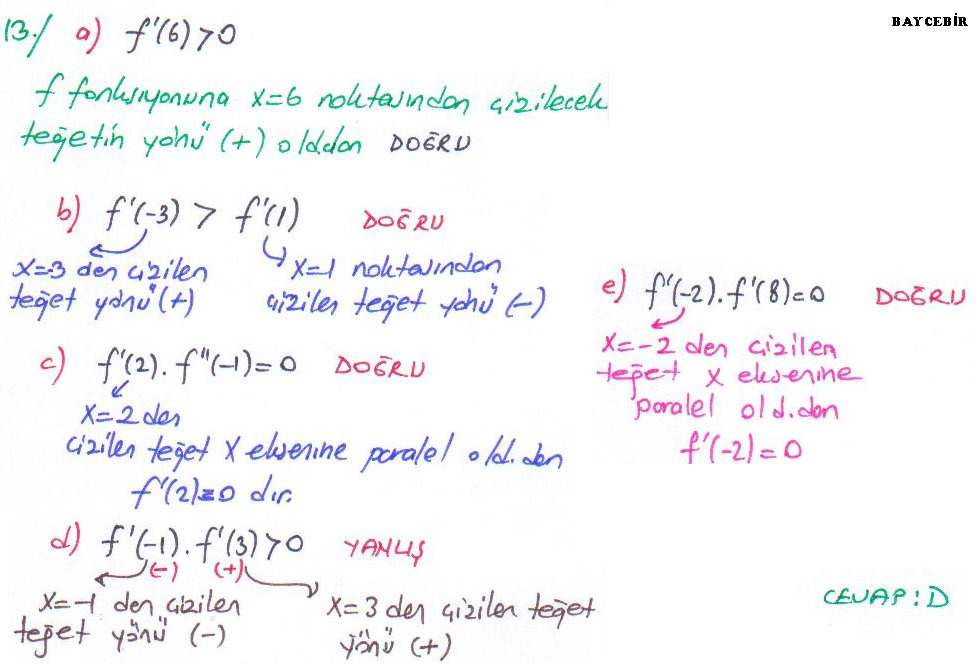 BAYCEBİR
13./ a) f'(6)>0
f fonksiyonuna x=6 noktasından çizilecek
teğetin yönü (+) old.dan DOĞRU
b) f'(-3) > f'(1) DOĞRU
x=-3 den çizilen
teğet yönü (+)
x=1 noktasından
çizilen teğet yönü (-)
c) f'(2).f''(-1)=0 DOĞRU
x=2 den
çizilen teğet x eksenine paralel old.dan
f'(2)=0 dır.
d) f'(-1).f'(3)>0 YANLIŞ
(-) (+)
x=-1 den çizilen
teğet yönü (-)
x=3 den çizilen teğet
yönü (+)
e) f'(-2).f'(8)=0 DOĞRU
x=-2 den çizilen
teğet x eksenine
paralel old.dan
f'(-2)=0
CEVAP:D